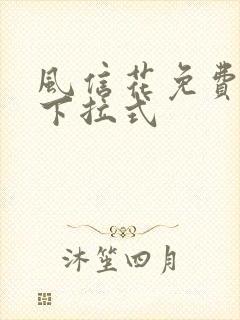 風信花免費
下拉式
沐笙四月